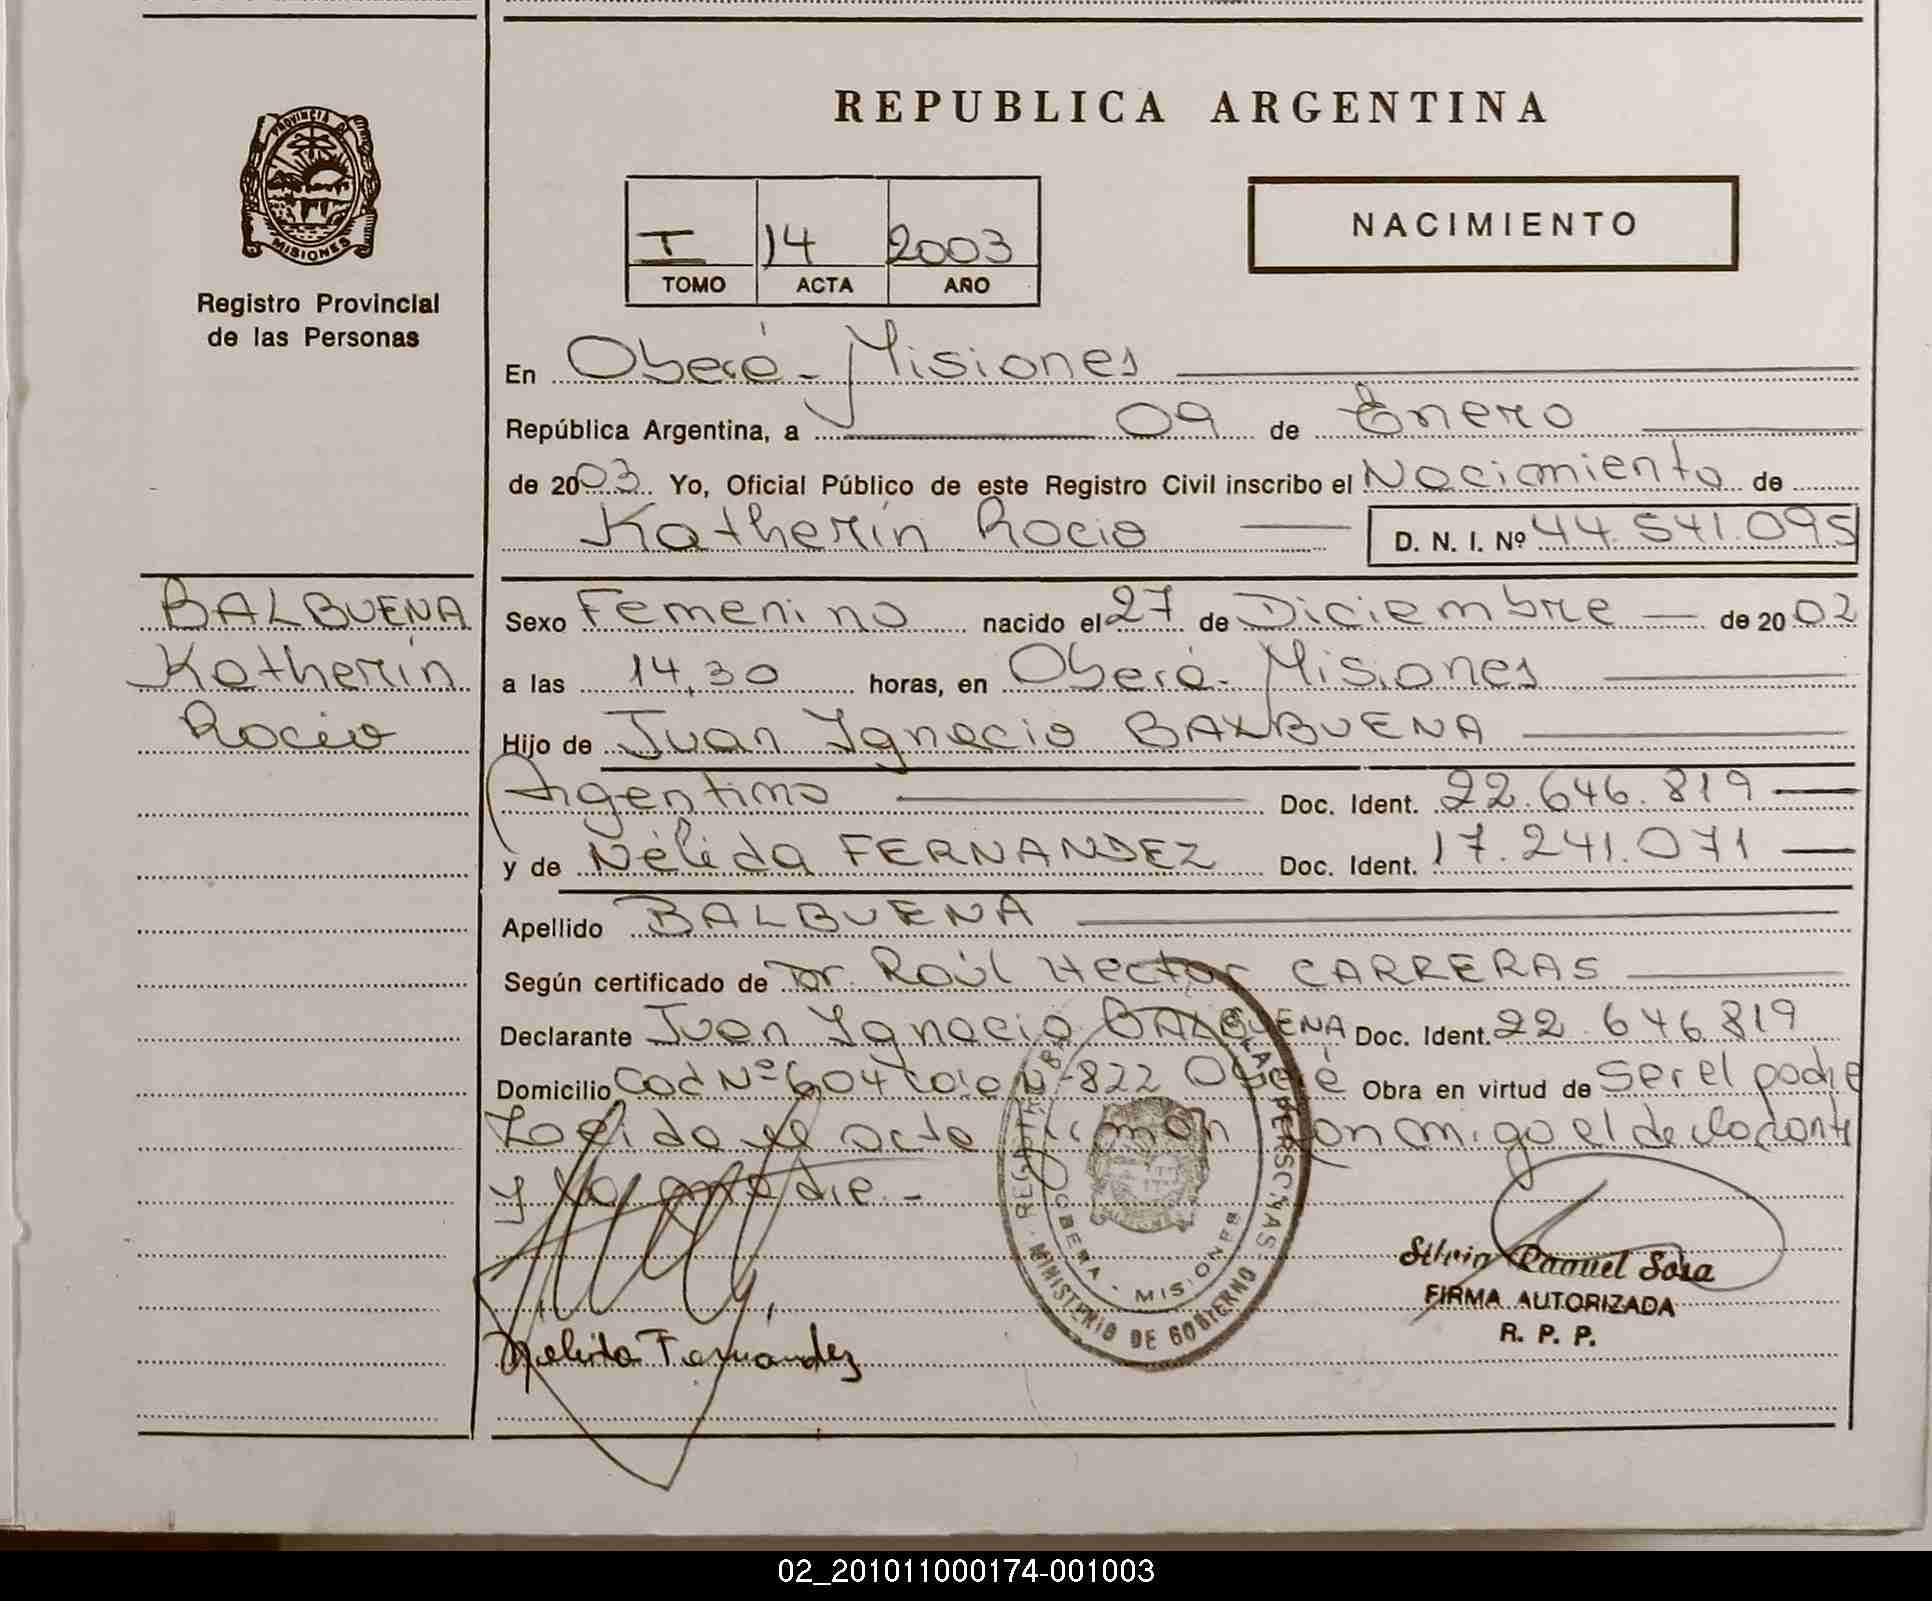 REPUBLICA ARGENTINA
PROVINCIA DE
MISIONES
Registro Provincial
de las Personas
I 14 2003
TOMO ACTA AÑO
NACIMIENTO
En Oberá - Misiones
República Argentina, a 09 de Enero
de 2003 Yo, Oficial Público de este Registro Civil inscribo el Nacimiento de
Katherin Rocio D. N. I. Nº 44.541.095
BALBUENA
Katherin
Rocio
Sexo Femenino nacido el 27 de Diciembre de 2002
a las 14,30 horas, en Oberá - Misiones
Hijo de Juan Ignacio BALBUENA
Argentino Doc. Ident. 22.646.819
y de Nélida FERNANDEZ Doc. Ident. 17.241.071
Apellido BALBUENA
Según certificado de Dr. Raúl Hector CARRERAS
Declarante Juan Ignacio BALBUENA Doc. Ident. 22.646.819
Domicilio Nº 604 822 Oberá Obra en virtud de ser el padre
Leída el acta firman conmigo el declarante
y la madre.-
REGISTRO DE LAS PERSONAS
OBERA - MISIONES
MINISTERIO DE GOBIERNO
Silvia Raquel Sosa
FIRMA AUTORIZADA
R. P. P.
Nelida Fernández
02_201011000174-001003